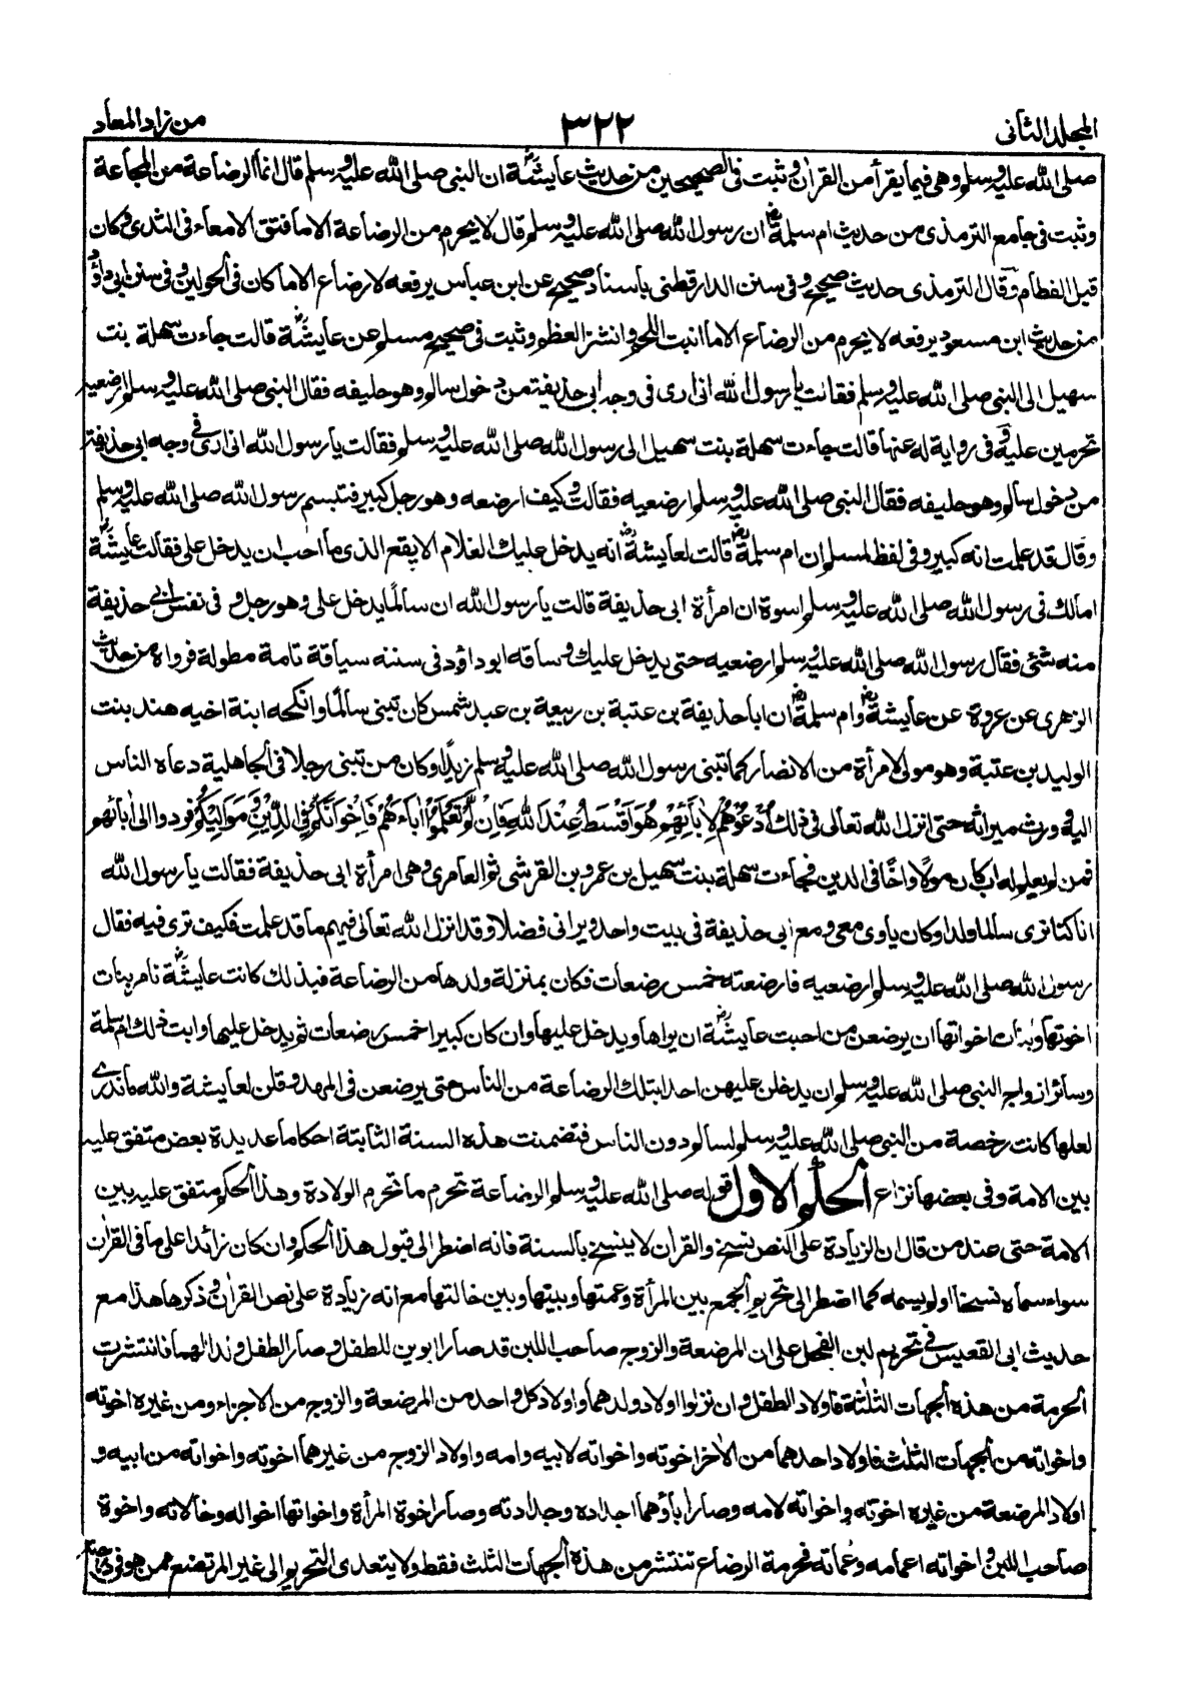 المجلد الثانى
٣٢٢
من زاد المعاد
صلى الله عليه وسلم وهى فيما يقرأ من القرأن وثبت فى الصحيحين من حديث عايشة ان النبى صلى الله عليه وسلم قال انما الرضاعة من المجاعة
وثبت فى جامع الترمذى من حديث ام سلمة ان رسول الله صلى الله عليه وسلم قال لا يحرم من الرضاعة الا ما فتق الامعاء فى الثدى وكان
قبل الفطام وقال الترمذى حديث صحيح وفى سنن الدارقطنى باسناد صحيح عن ابن عباس يرفعه لا رضاع الا ما كان فى الحولين وفى سنن ابى داؤد
من حديث ابن مسعود يرفعه لا يحرم من الرضاع الا ما انبت اللحم وانشز العظم وثبت فى صحيح مسلم عن عايشة قالت جاءت سهلة بنت
سهيل الى النبى صلى الله عليه وسلم فقالت يا رسول الله انى ارى فى وجه ابى حذيفة من دخول سالم وهو حليفه فقال النبى صلى الله عليه وسلم ارضعيه
تحرمين عليه وفى رواية له عنها قالت جاءت سهلة بنت سهيل الى رسول الله صلى الله عليه وسلم فقالت يا رسول الله انى ارى فى وجه ابى حذيفة
من دخول سالم وهو حليفه فقال النبى صلى الله عليه وسلم ارضعيه فقالت وكيف ارضعه وهو رجل كبير فتبسم رسول الله صلى الله عليه وسلم
وقال قد علمت انه كبير وفى لفظ لمسلم ان ام سلمة قالت لعايشة انه يدخل عليك الغلام الايقع الذى ما احب ان يدخل على فقالت عايشة
امالك فى رسول الله صلى الله عليه وسلم اسوة ان امرأة ابى حذيفة قالت يا رسول الله ان سالمًا يدخل على وهو رجل و فى نفس ابى حذيفة
منه شئ فقال رسول الله صلى الله عليه وسلم ارضعيه حتى يدخل عليك وساقه ابو داؤد فى سننه سياقة تامة مطولة فرواه من حديث
الزهرى عن عروة عن عايشة وام سلمة ان ابا حذيفة بن عتبة بن ربيعة بن عبد شمس كان تبنى سالمًا وانكحه ابنة اخيه هند بنت
الوليد بن عتبة وهو مولى لامرأة من الانصار كما تبنى رسول الله صلى الله عليه وسلم زيدًا وكان من تبنى رجلا فى الجاهلية دعاه الناس
اليه وورث ميراثه حتى انزل الله تعالى فى ذلك أُدْعُوهُمْ لِأَبَائِهِمْ هُوَ أَقْسَطُ عِنْدَ اللهِ فَاِنْ لَّمْ تَعْلَمُوْا اٰبَاءَهُمْ فَاِخْوَانُكُمْ فِى الدِّيْنِ وَمَوَالِيْكُمْ فردوا الى أبائهم
فمن لم يعلم له اب كان مولًا واخًا فى الدين فجاءت سهلة بنت سهيل بن عمرو بن القرشى ثم العامرى وهى امرأة ابى حذيفة فقالت يا رسول الله
انا كنا نرى سالما ولدا وكان ياوى معى ومع ابى حذيفة فى بيت واحد ويرانى فضلا وقد انزل الله تعالى فيهم ما قد علمت فكيف ترى فيه فقال
رسول الله صلى الله عليه وسلم ارضعيه فارضعته خمس رضعات فكان بمنزلة ولدها من الرضاعة فبذلك كانت عايشة تامر بنات
اخوتها وبنات اخواتها ان يرضعن من احبت عايشة ان يراها ويدخل عليها وان كان كبيرا خمس رضعات ثم يدخل عليها وابت ذلك ام سلمة
وسائر ازواج النبى صلى الله عليه وسلم ان يدخلن عليهن احدا بتلك الرضاعة من الناس حتى يرضعن فى المهد وقلن لعايشة والله ما ندرى
لعلها كانت رخصة من النبى صلى الله عليه وسلم لسالم دون الناس فتضمنت هذه السنة الثابتة احكاما عديدة بعض متفق عليه
بين الامة وفى بعضها نزاع الحكم الاول قوله صلى الله عليه وسلم الرضاعة تحرم ما تحرم الولادة وهذا الحكم متفق عليه بين
الامة حتى عند من قال ان الزيادة على النص نسخ والقرأن لا ينسخ بالسنة فانه اضطر الى قبول هذا الحكم وان كان زائدا على ما فى القرأن
سواء سماه نسخا او لم يسمه كما اضطر الى تحريم الجمع بين المرأة وعمتها وبينها وبين خالتها مع انه زيادة على نص القرأن وذكرها هذا مع
حديث ابى القعيس فى تحريم لبن الفحل على ان المرضعة والزوج صاحب اللبن قد صارا ابوين للطفل وصار الطفل ولدا لهما فانتشرت
الحرمة من هذه الجهات الثلثة فاولاد الطفل وان نزلوا اولاد ولدهما واولاد كل واحد من المرضعة والزوج من الاجزاء ومن غيره اخوته
واخواته من الجهات الثلث فاولاد احدهما من الأخر اخوته واخواته لابيه وامه واولاد الزوج من غيرها اخوته واخواته من ابيه و
اولاد المرضعة من غيره اخوته واخواته لامه وصار اباؤهما اجداده وجداته وصار اخوة المرأة واخواتها اخواله وخالاته واخوة
صاحب اللبن واخواته اعمامه وعماته فحرمة الرضاع تنتشر من هذه الجهات الثلث فقط ولا يتعدى التحريم الى غير المرتضع ممن هو فى